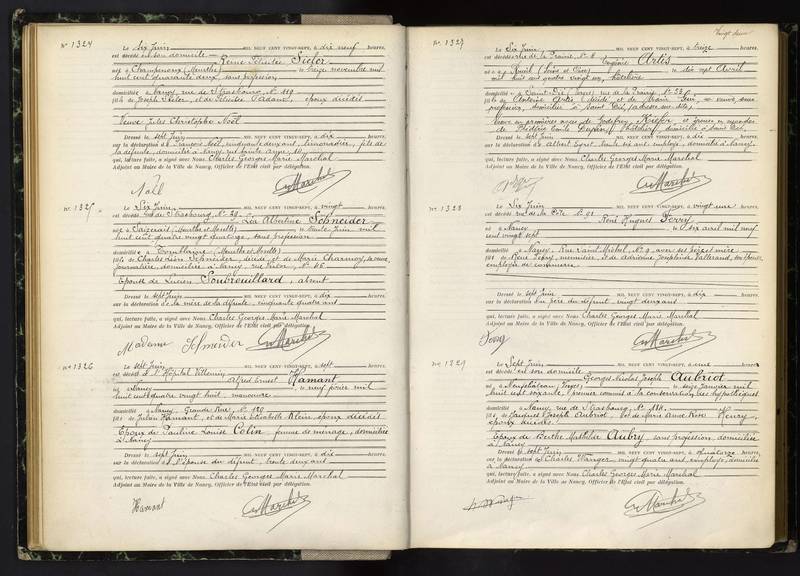 N° 1324
Le six Juin MIL NEUF CENT VINGT-SEPT, à dix neuf heures,
est décédé en son domicile Reine Félicitée Siefer
né à Champenoux (Meurthe) le treize novembre mil
huit cent quarante deux, sans profession
domicilié à Nancy, rue de Strasbourg, N° 119
fils de Joseph Siefer, et de Félicitée Padane, époux décédés
Veuve Jules Christophe Noël
Dressé le sept Juin MIL NEUF CENT VINGT-SEPT, à dix heures,
sur la déclaration de François Noël, cinquante deux ans, limonadier, fils de
la défunte, domicilié à Nancy, rue Sainte Anne,
qui, lecture faite, a signé avec Nous Charles Georges Marie Marchal
Adjoint au Maire de la Ville de Nancy, Officier de l'Etat civil par délégation.
Noël Marchal
N° 1325
Le Six Juin MIL NEUF CENT VINGT-SEPT, à vingt heures,
est décédé rue de Strasbourg, N° Léa Albertine Schneider
né à Saizerais (Meurthe et Moselle) le trente Juin mil
huit cent quatre vingt quatorze, sans profession
domicilié à Tomblaine (Meurthe et Moselle)
fille de Charles Léon Schneider, décédé, et de Marie Charnoy, sa veuve
journalière, domiciliée à Nancy, rue
Epouse de Lucien Soubrouillard, absent
Dressé le sept Juin MIL NEUF CENT VINGT-SEPT, à dix heures,
sur la déclaration de la mère de la défunte, cinquante quatre ans
qui, lecture faite, a signé avec Nous Charles Georges Marie Marchal
Adjoint au Maire de la Ville de Nancy, Officier de l'Etat civil par délégation.
Madame Schneider Marchal
N° 1326
Le sept Juin MIL NEUF CENT VINGT-SEPT, à sept heures,
est décédé à l'Hôpital Villemin Alfred Ernest Hamant
né à Nancy le neuf février mil
huit cent quatre vingt huit, manoeuvre
domicilié à Nancy, Grande Rue, N° 120
fils de Julien Hamant, et de Marie Elisabeth Klein, époux décédés
Epoux de Pauline Louise Colin, femme de ménage, domiciliée
à Nancy
Dressé le sept Juin MIL NEUF CENT VINGT-SEPT, à dix heures,
sur la déclaration de l'épouse du défunt, trente deux ans
qui, lecture faite, a signé avec Nous Charles Georges Marie Marchal
Adjoint au Maire de la Ville de Nancy, Officier de l'Etat civil par délégation.
Hamant Marchal
N° 1327
Le Six Juin MIL NEUF CENT VINGT-SEPT, à treize heures,
est décédé rue de la Prairie, N° Eugène Artis
né à le dix sept Avril
mil huit cent quatre vingt un, hôtelier
domicilié à Saint-Dié (Vosges) rue de la Prairie, N°
fils de Artis, décédé, et de Marie sa veuve, sans
profession, domiciliée à Saint Dié
Veuf en premières noces de Godefroy Kiefer, et époux en secondes
de domiciliée à Saint Dié
Dressé le sept Juin MIL NEUF CENT VINGT-SEPT, à dix heures,
sur la déclaration de Albert trente six ans, employé, domicilié à Nancy,
qui, lecture faite, a signé avec Nous Charles Georges Marie Marchal
Adjoint au Maire de la Ville de Nancy, Officier de l'Etat civil par délégation.
Marchal
N° 1328
Le Six Juin MIL NEUF CENT VINGT-SEPT, à vingt une heures,
est décédé rue René Hugues Ferry
né à Nancy le six avril mil neuf
cent vingt sept
domicilié à Nancy, Rue Saint Michel, N° 9, avec ses père et mère
fils de René Ferry, menuisier, et de Adrienne Joséphine Vallerand, son épouse,
employée de confiserie
Dressé le sept Juin MIL NEUF CENT VINGT-SEPT, à dix heures,
sur la déclaration du père du défunt, vingt deux ans
qui, lecture faite, a signé avec Nous Charles Georges Marie Marchal
Adjoint au Maire de la Ville de Nancy, Officier de l'Etat civil par délégation.
Ferry Marchal
N° 1329
Le Sept Juin MIL NEUF CENT VINGT-SEPT, à une heures,
est décédé en son domicile Georges Nicolas Joseph Aubriot
né à Neufchâteau (Vosges) le seize Janvier mil
huit cent soixante, premier commis à la conservation des hypothèques
domicilié à Nancy, rue de Strasbourg, N°
fils de Jacques Joseph Aubriot, et de Marie Anne Henry,
époux décédés
Epoux de Berthe Mathilde Aubry, sans profession, domiciliée
à Nancy
Dressé le sept Juin MIL NEUF CENT VINGT-SEPT, à quatorze heures,
sur la déclaration de Charles vingt quatre ans, employé, domicilié
à Nancy
qui, lecture faite, a signé avec Nous Charles Georges Marie Marchal
Adjoint au Maire de la Ville de Nancy, Officier de l'Etat civil par délégation.
Marchal